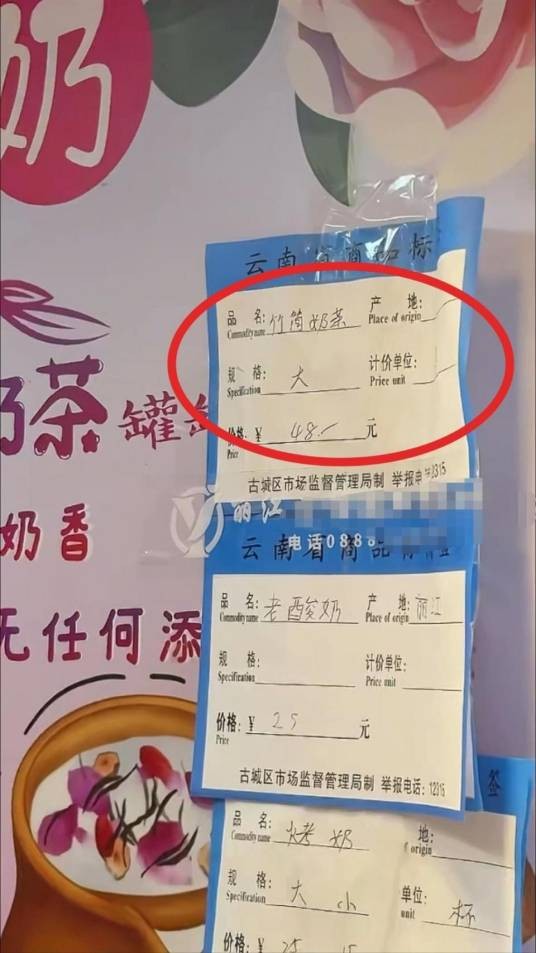 奶
奶茶 罐
奶香
无任何添
云南省商品标
品 名: 竹筒奶茶 产 地:
Commodity name Place of origin
规 格: 大 计价单位:
Specification Price unit
价格: ¥ 48.- 元
Price
古城区市场监督管理局制 举报电 12315
丽江
电话0888
云南省商品标价签
品 名: 老酸奶 产 地: 丽江
Commodity name Place of origin
规 格: 计价单位:
Specification Price unit
价格: ¥ 25 元
Price
古城区市场监督管理局制 举报电话: 12315
签
品 名: 烤奶 地:
Commodity name of origin
规 格: 大 小 单位: 杯
Specification unit
价格: ¥ 25 15